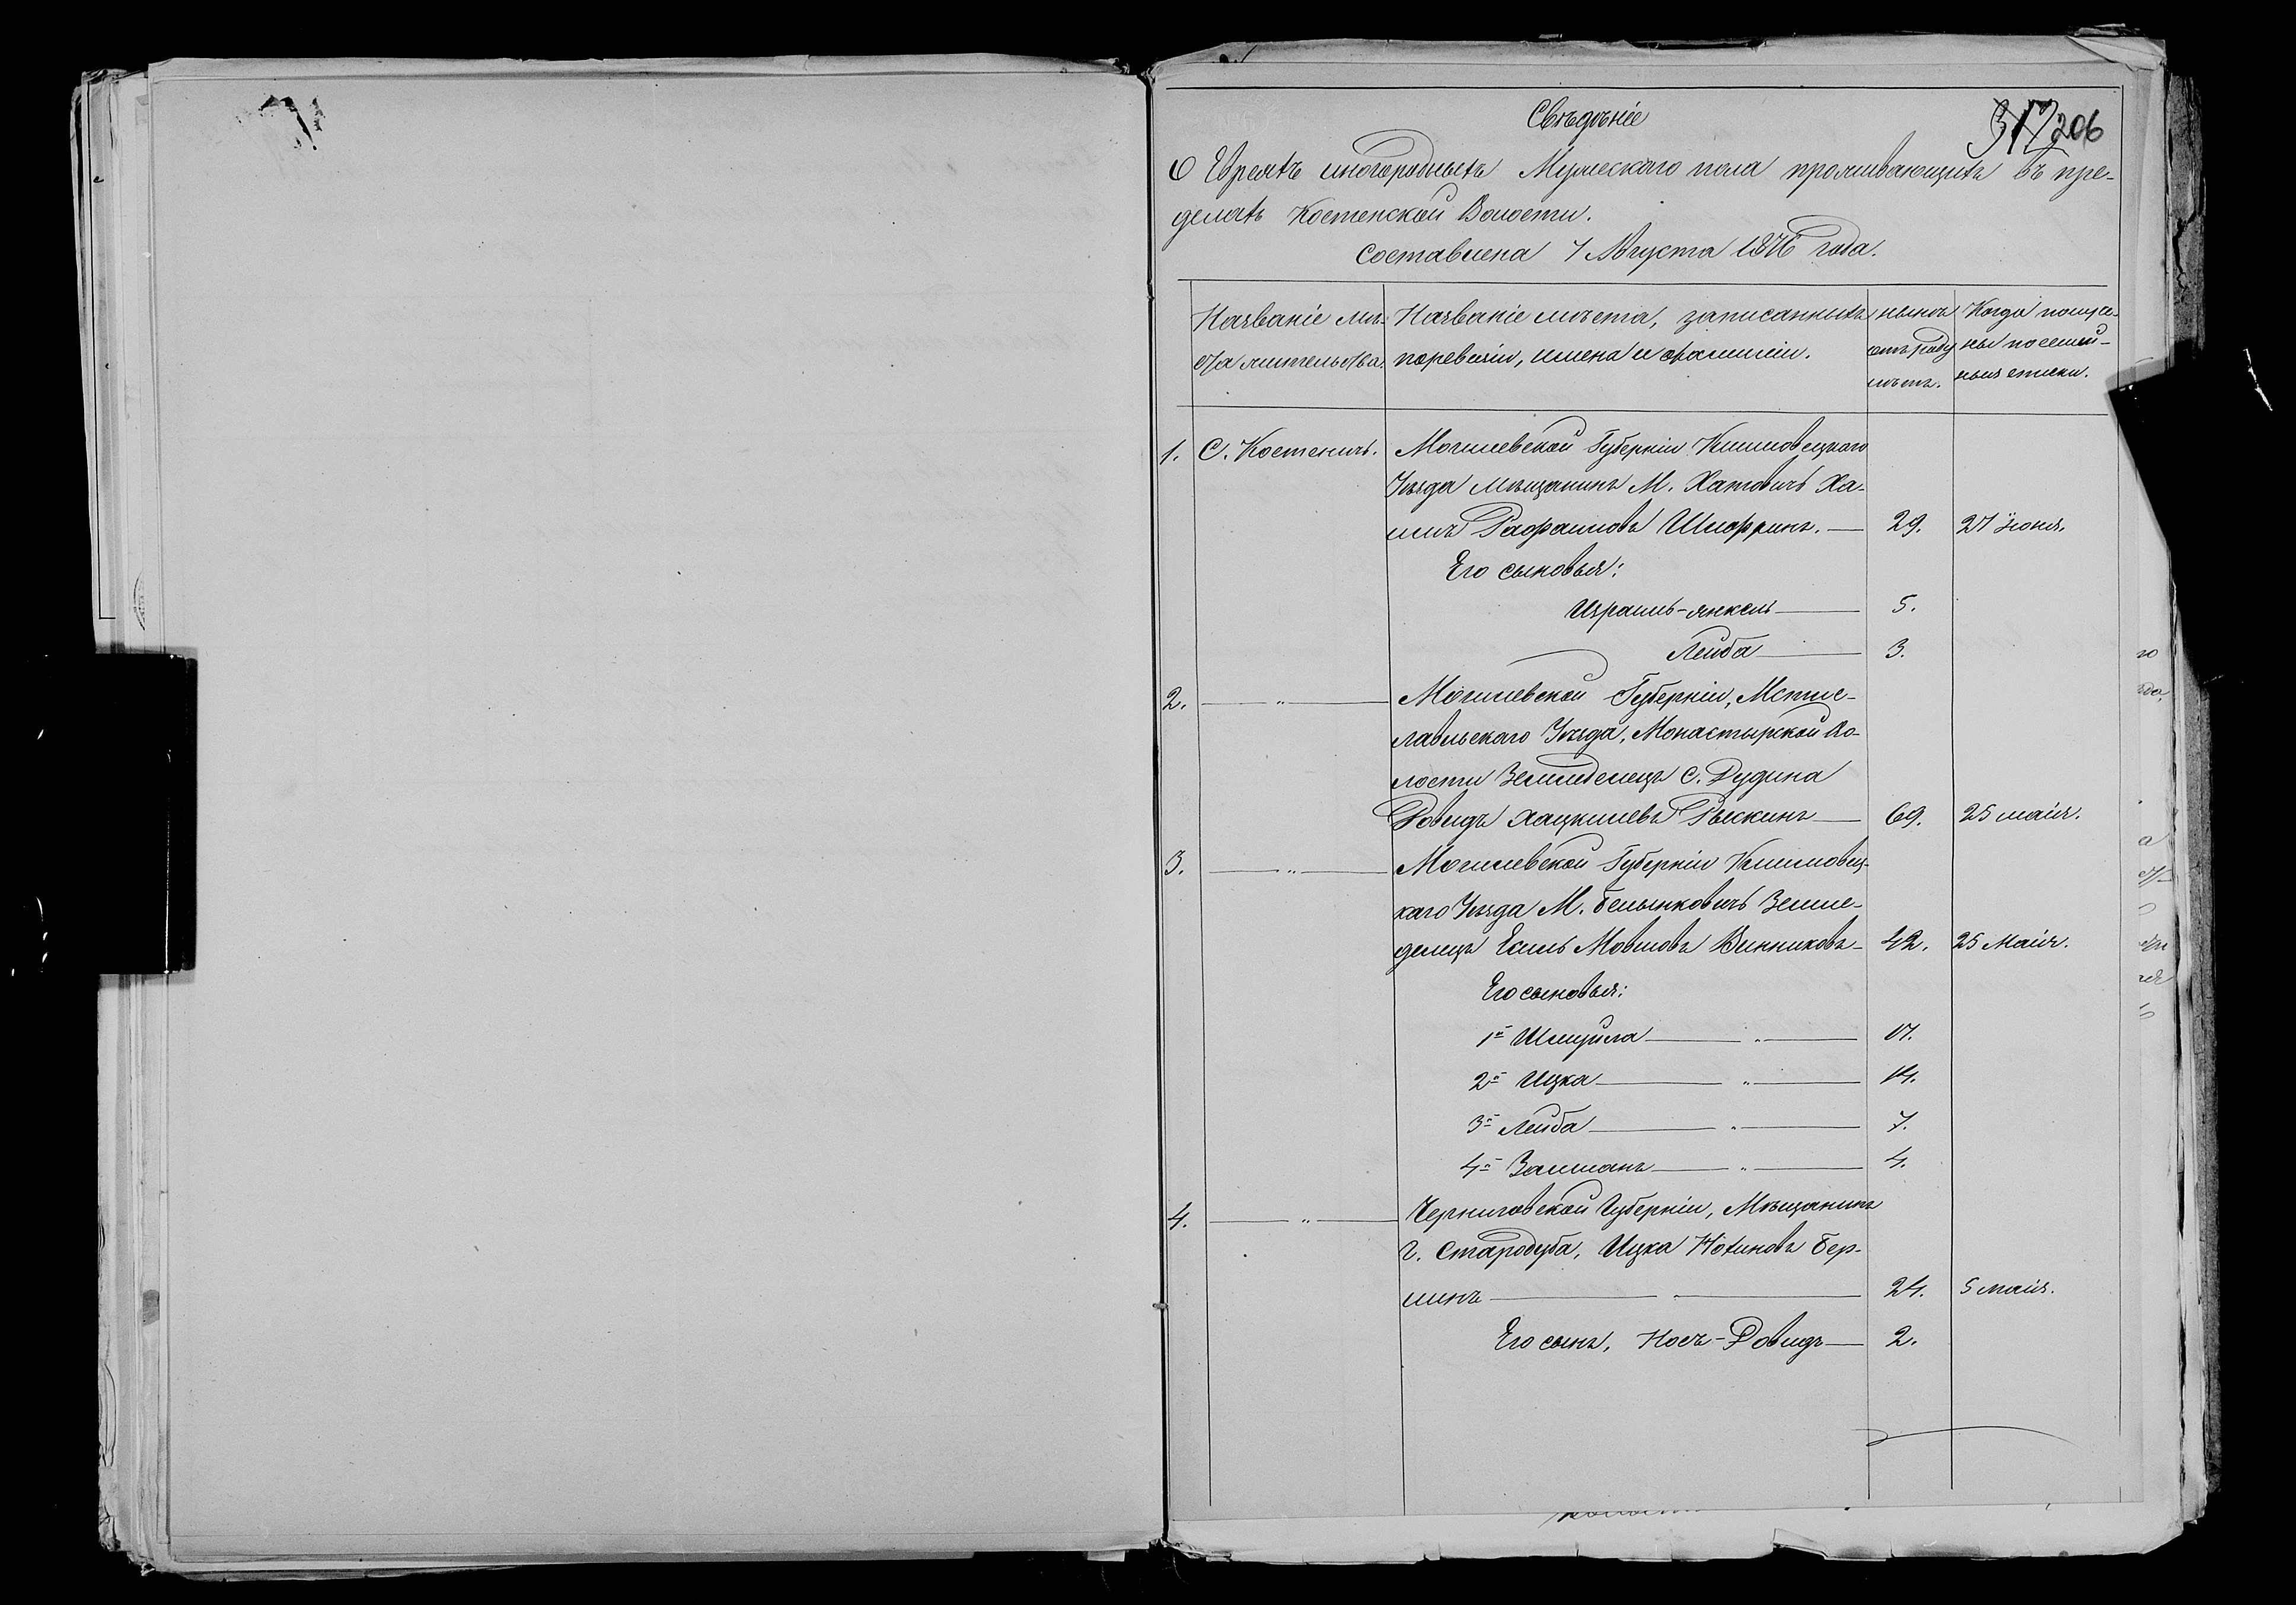 Свѣдѣніе
317 206
О Евреяхъ иногородныхъ Мужескаго пола проживающихъ въ пре-
делахъ Костенской Волости.
Составлена 7 Августа 1876 года.
Названіе мѣ- Названіе мѣста, записанныхъ нынѣ Когда получе-
ста жительства. поревизіи, имена и фамиліи. отъ роду ны посемей-
лѣтъ. ныя списки.
1. С. Костеничъ. Могилевской Губерніи Климовецкаго
Уѣзда Мѣщанинъ М. Хатовичъ Ха-
имъ Рафаиловъ Шифринъ. — 29. 27 Іюня.
Его сыновья:
Израиль-Янкель — 5.
Лейба — 3.
2. — " — Могилевской Губерніи, Мстис-
лавльскаго Уѣзда, Монастырской Во-
лости Земледелецъ С. Дудина
Довидъ Хацкилевъ Рыскинъ — 69. 25 маія.
3. — " — Могилевской Губерніи Климовец-
каго Уѣзда М. Белынковичъ Земле-
делецъ Есиль Мовшовъ Винниковъ — 42. 25 Маія.
Его сыновья:
1й Шмуйла — " — 17.
2й Ицка — " — 14.
3й Лейба — " — 7.
4й Залманъ — " — 4.
4. — " — Черниговской Губерніи, Мѣщанинъ
г. Стародуба, Ицка Нохимовъ Бер-
линъ — 24. 5 маія.
Его сынъ, Носъ-Довидъ — 2.